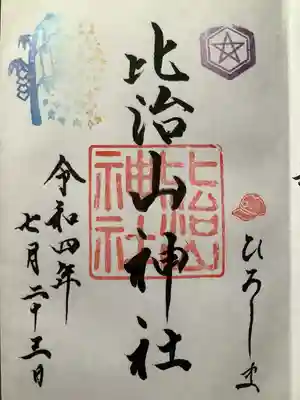 ひろしま
比治山神社
比治山
神社
令和四年
七月二十三日